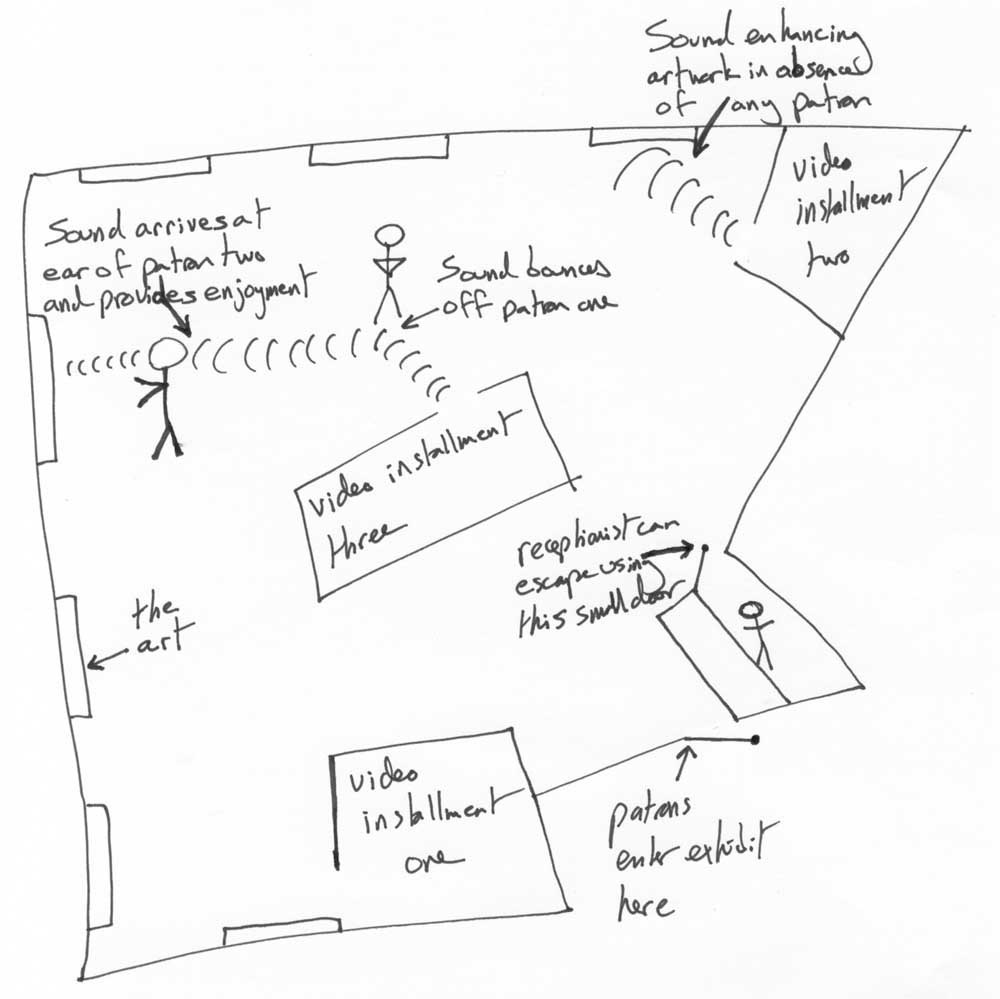 Sound enhancing
artwork in absence
of any patron
video
installment
two
Sound arrives at
ear of patron two
and provides enjoyment
Sound bounces
off patron one
video installment
three
receptionist can
escape using
this small door
the
art
video
installment
one
patrons
enter exhibit
here